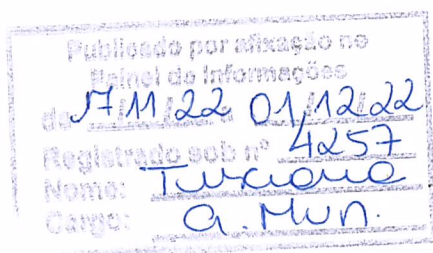 Publicado por afixação no
Painel de Informações
de 17/11/22 a 01/12/22
Registrado sob nº 4257
Nome:
Cargo: a. Mun.